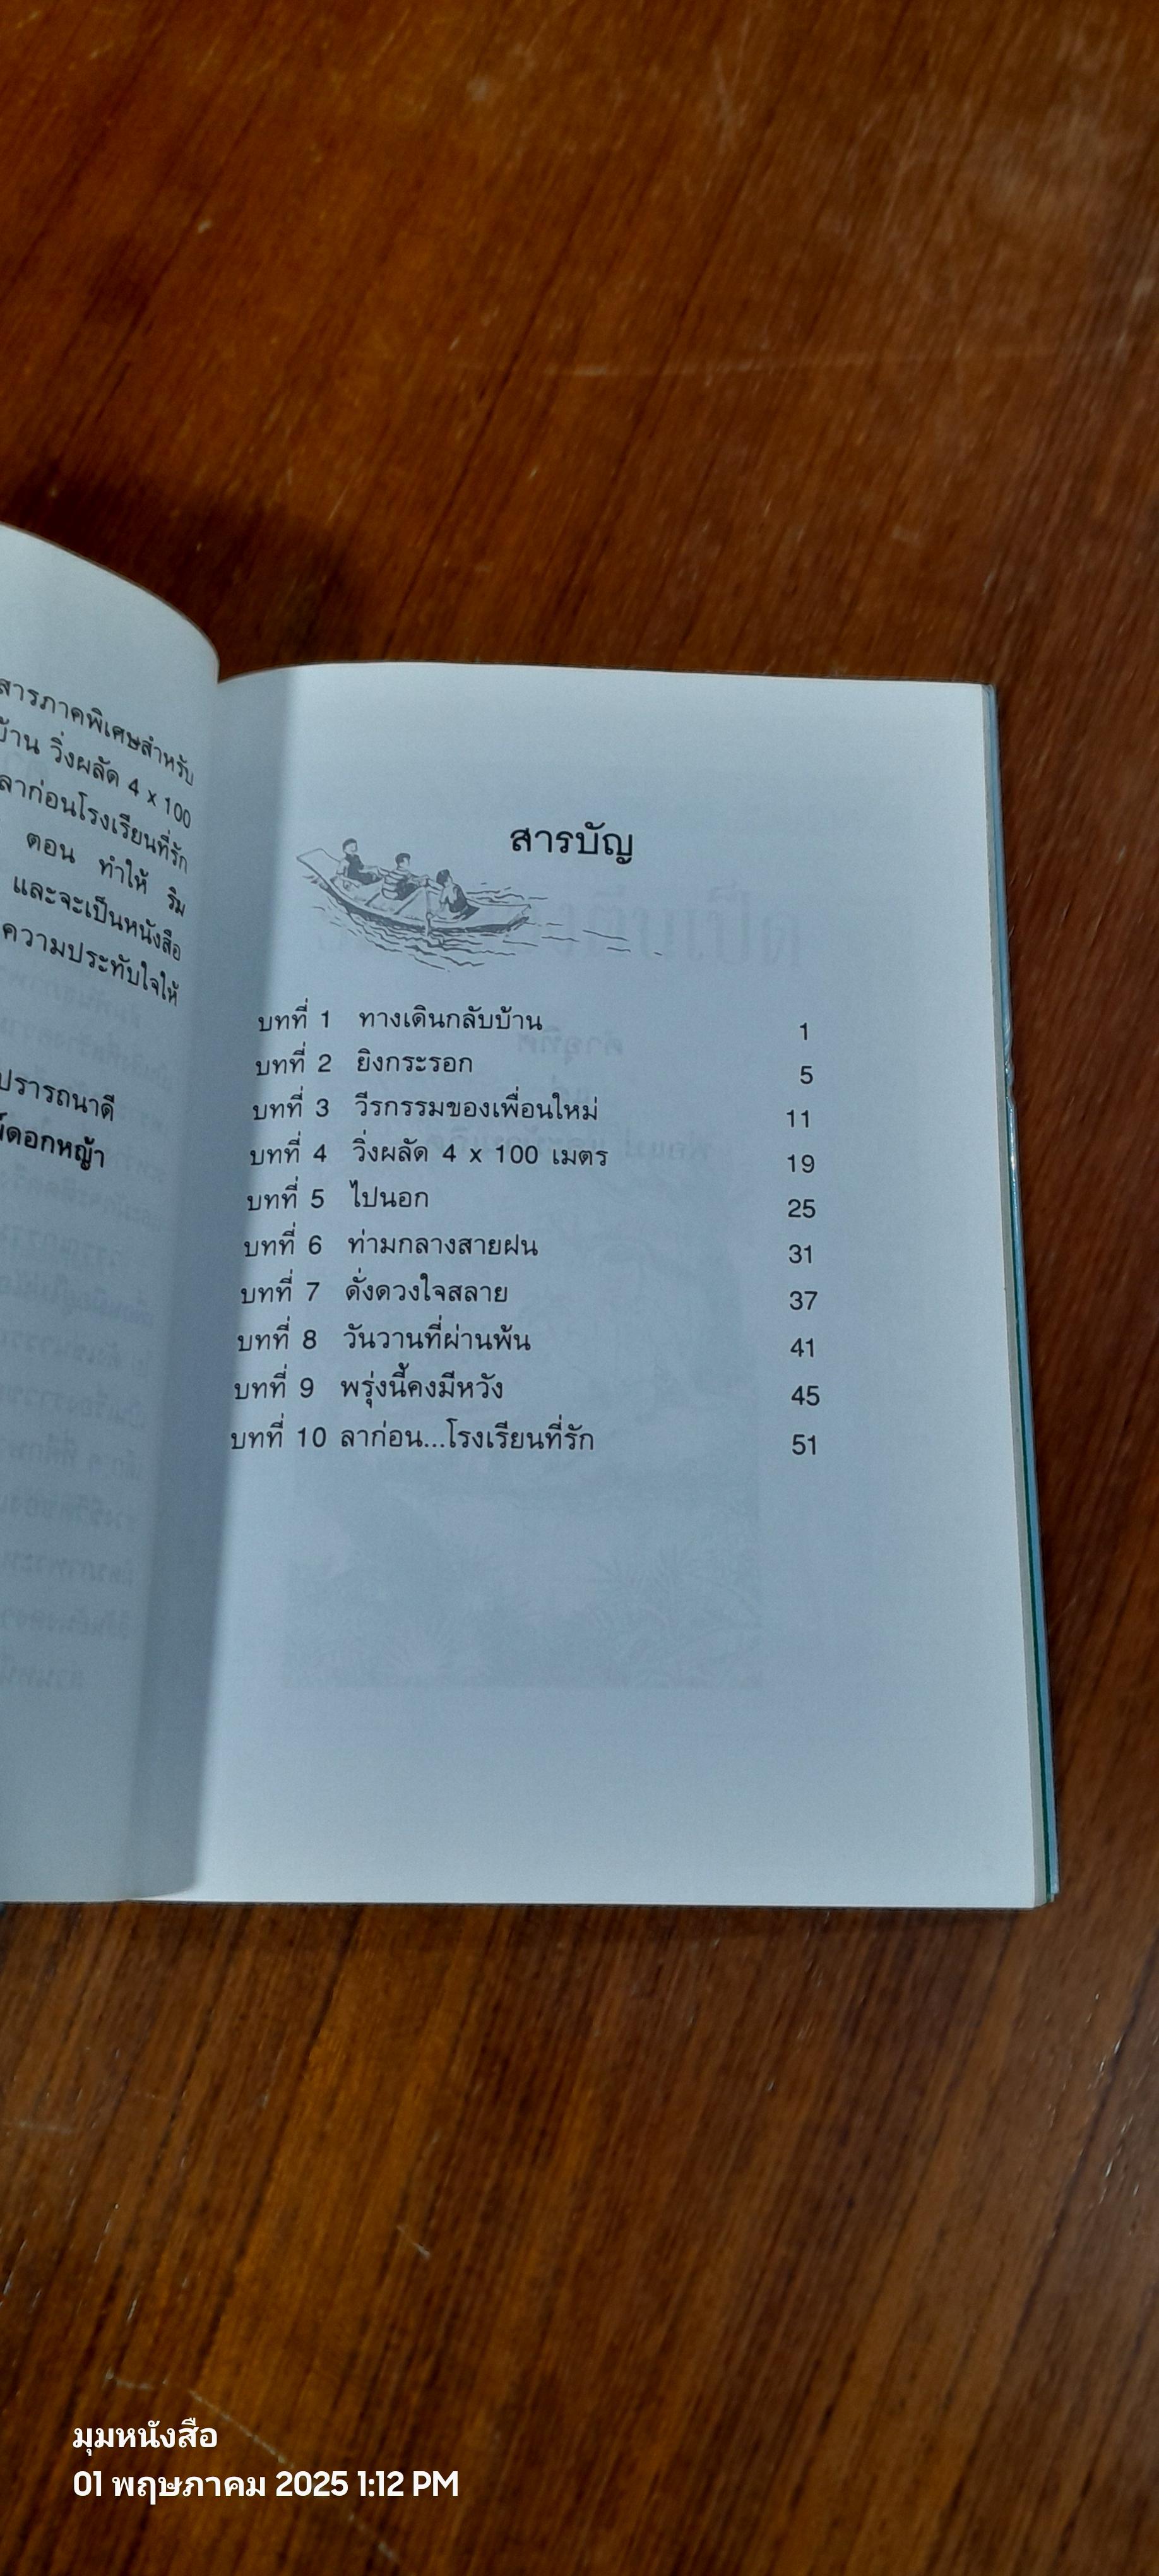 สารภาคพิเศษสำหรับ
บ้าน วิ่งผลัด 4 x 100
ลาก่อนโรงเรียนที่รัก
ตอน ทำให้ ริม
และจะเป็นหนังสือ
ความประทับใจให้
ปรารถนาดี
ดอกหญ้า
สารบัญ
บทที่ 1 ทางเดินกลับบ้าน 1
บทที่ 2 ยิงกระรอก 5
บทที่ 3 วีรกรรมของเพื่อนใหม่ 11
บทที่ 4 วิ่งผลัด 4 x 100 เมตร 19
บทที่ 5 ไปนอก 25
บทที่ 6 ท่ามกลางสายฝน 31
บทที่ 7 ดั่งดวงใจสลาย 37
บทที่ 8 วันวานที่ผ่านพ้น 41
บทที่ 9 พรุ่งนี้คงมีหวัง 45
บทที่ 10 ลาก่อน...โรงเรียนที่รัก 51
มุมหนังสือ
01 พฤษภาคม 2025 1:12 PM